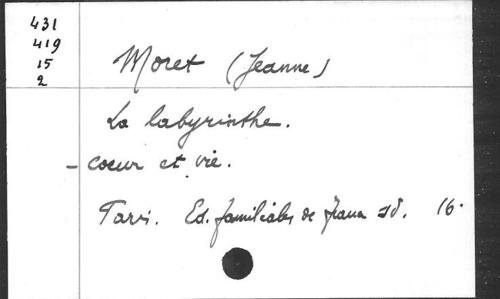 431
419
15
2
Moret (Jeanne)
La labyrinthe.
- coeur et vie.
Paris. Ed. familiales de France sd. 16.